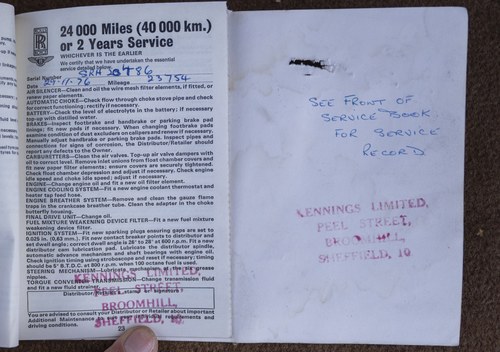 24 000 Miles (40 000 km.)
or 2 Years Service
WHICHEVER IS THE EARLIER
We certify that we have undertaken the essential
service detailed below.
Serial Number
Date 29-11-76 Mileage 23754
AIR SILENCER—Clean and oil the wire mesh filter elements, if fitted, or
renew paper elements.
AUTOMATIC CHOKE—Check flow through choke stove pipe and check
for correct functioning; rectify if necessary.
BATTERY—Check the level of electrolyte in the battery; if necessary
top-up with distilled water.
BRAKES—Inspect footbrake and handbrake or parking brake pad
linings; fit new pads if necessary. When changing footbrake pads
examine condition of dust excluders on calipers and renew if necessary.
Manually adjust handbrake or parking brake pads. Inspect pipes and
connections for signs of corrosion, the Distributor/Retailer should
report any defects to the Owner.
CARBURETTERS—Clean the air valves. Top-up air valve dampers with
oil to correct level. Remove inlet unions from float chamber covers and
fit new paper filter elements; ensure covers are securely tightened.
Check float chamber depression and adjust if necessary. Check engine
idle speed and choke idle speed; adjust if necessary.
ENGINE—Change engine oil and fit a new oil filter element.
ENGINE COOLING SYSTEM—Fit a new engine coolant thermostat and
heater tap feed hose.
ENGINE BREATHER SYSTEM—Remove and clean the gauze flame
traps in the crankcase breather tube. Clean the adapter in the choke
butterfly housing.
FINAL DRIVE UNIT—Change oil.
FUEL MIXTURE WEAKENING DEVICE FILTER—Fit a new fuel mixture
weakening device filter.
IGNITION SYSTEM—Fit new sparking plugs ensuring gaps are set to
0,025 in. (0,63 mm.). Fit new contact breaker points to distributor and
set dwell angle; correct dwell angle is 26° to 28° at 800 r.p.m. Fit a new
distributor cam lubrication pad. Lubricate the distributor spindle,
automatic advance mechanism and shaft bearings with engine oil.
Check ignition timing using stroboscope and reset if necessary; timing
should be 5° B.T.D.C. at 800 r.p.m. when 100 octane fuel is used.
STEERING MECHANISM—Lubricate mechanism at the
nipples.
TORQUE CONVERTER TRANSMISSION—Change transmission fluid
and fit a new fluid strainer.
Distributor/Retailer
KENNINGS LIMITED,
PEEL STREET
BROOMHILL,
SHEFFIELD, 10
You are advised to consult your Distributor or Retailer about important
Additional Maintenance to suit your individual requirements and
driving conditions.
23
SEE FRONT OF
SERVICE BOOK
FOR SERVICE
RECORD
KENNINGS LIMITED,
PEEL STREET,
BROOMHILL,
SHEFFIELD, 10